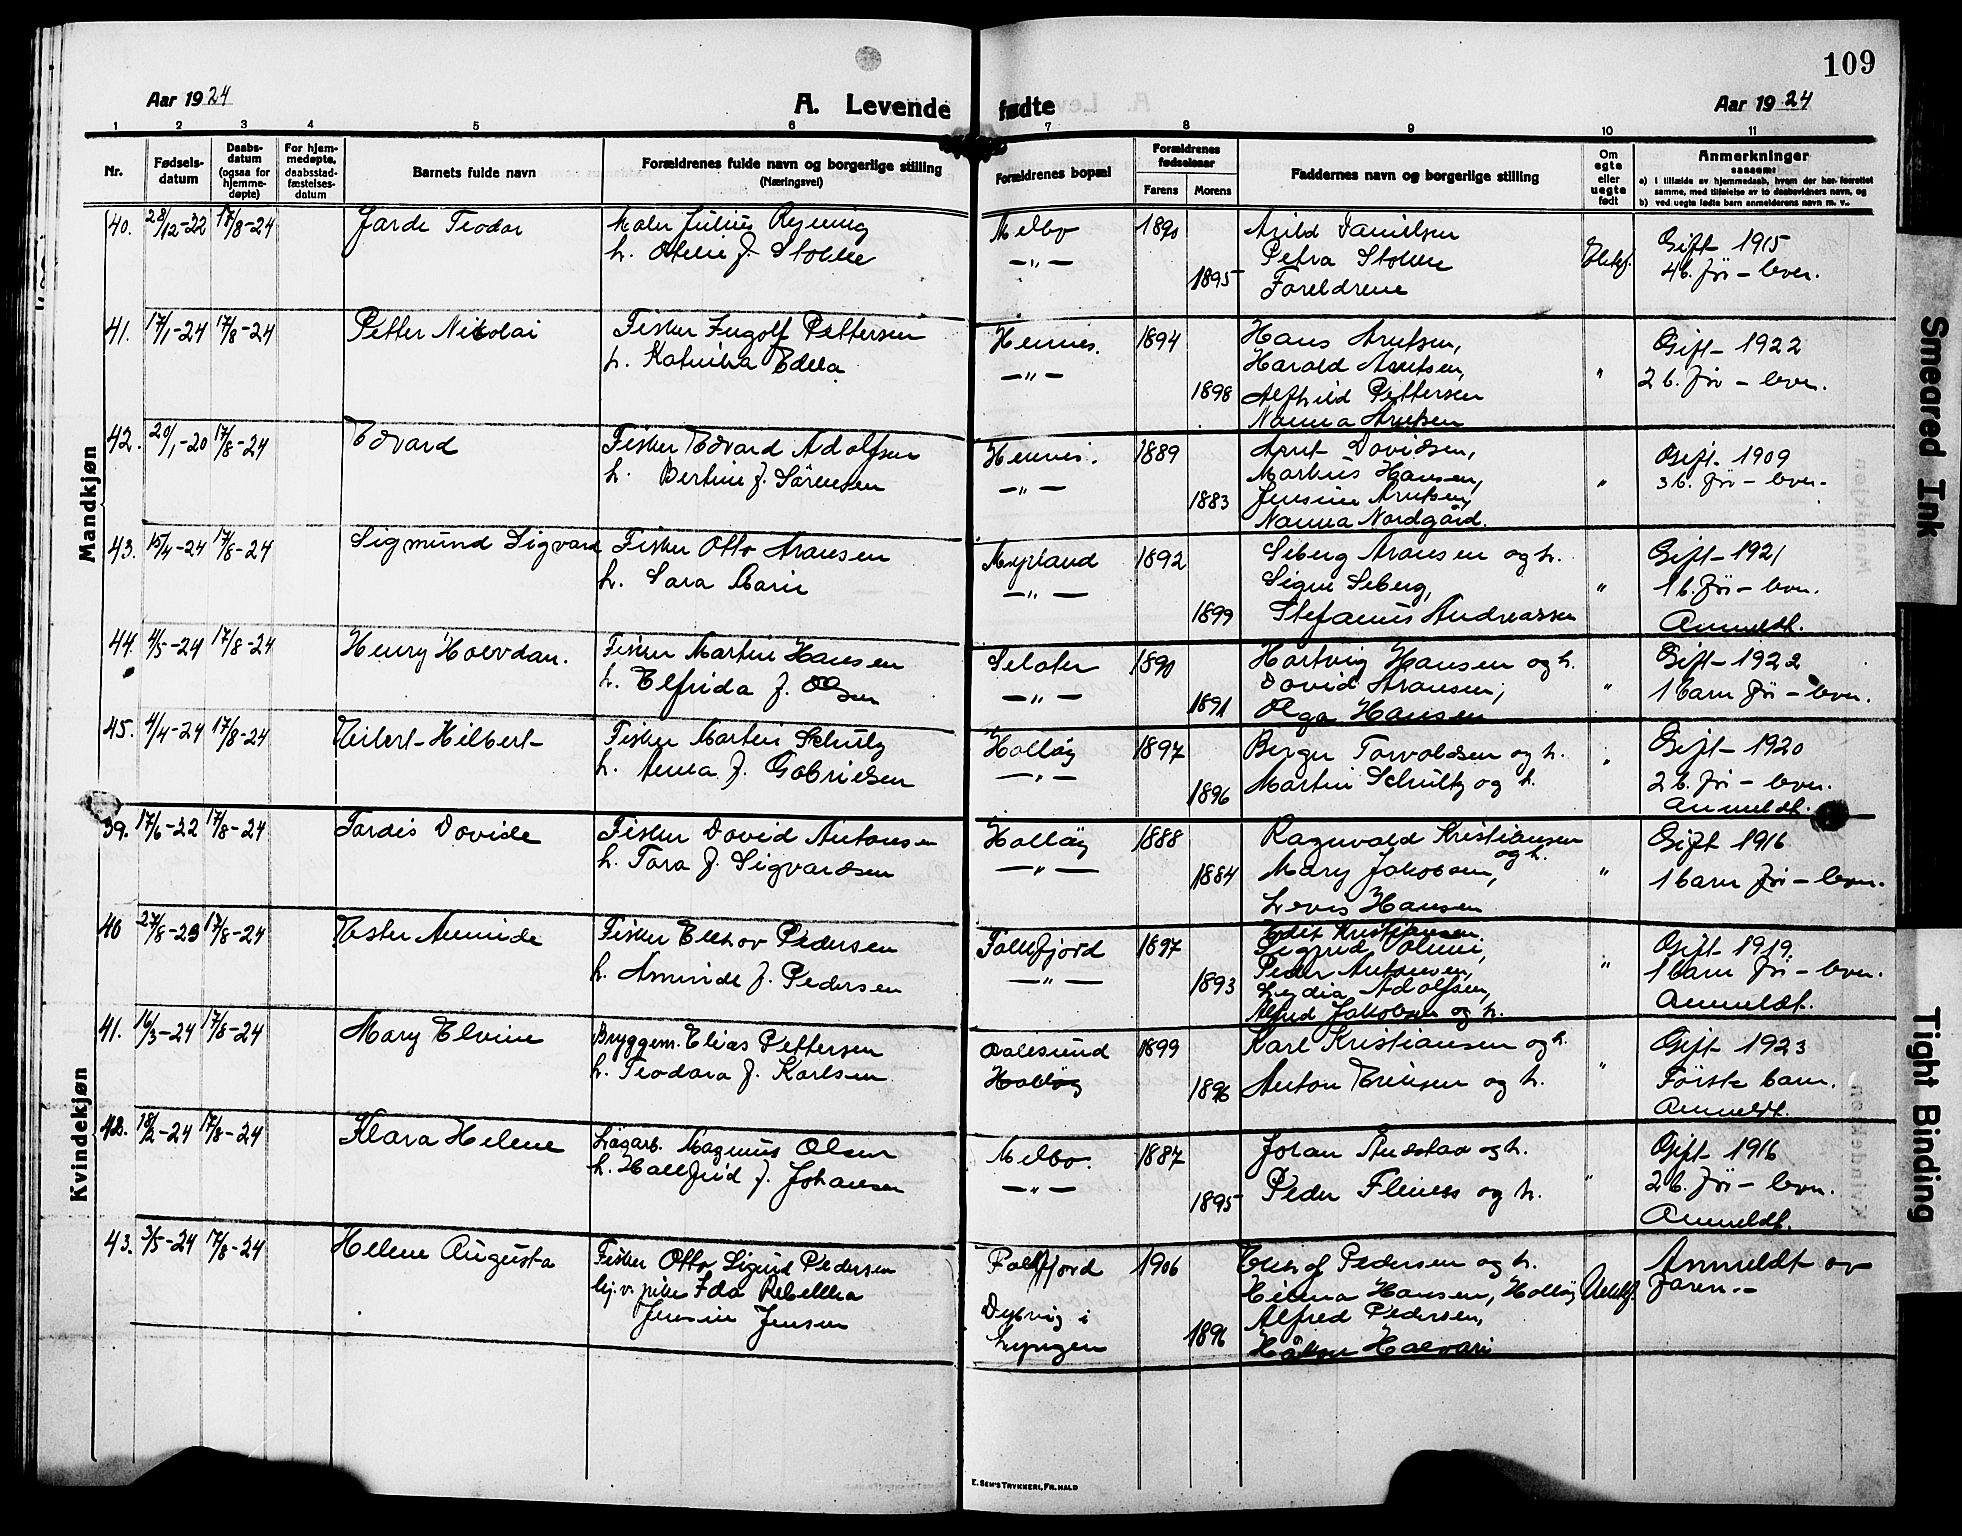 109
Aar 1924
A. Levende fødte
Aar 1924
1 2 3 4 5 6 7 8 9 10 11
Nr.
Fødsels-
datum
Daabs-
datum
(ogsaa for
hjemme-
døpte)
For hjem-
medøpte,
daabsstad-
fæstelses-
datum
Barnets fulde navn
Forældrenes fulde navn og borgerlige stilling
(Næringsvei)
Forældrenes bopæl
Forældrenes
fødselsaar
Farens Morens
Faddernes navn og borgerlige stilling
Om
egte
eller
uegte
født
Anmerkninger
saasom:
a) i tilfælde av hjemmedaab, hvem der har forrettet
samme, med tilføielse av to daabsvidners navn, og
b) ved uegte fødte barn anmelderens navn m. v.
Mandkjøn
40. 28/12-22 17/8-24 Jarde Teodor
Maler Julius Reining
h. Otelie f. Stokke
Melbo
—"—
1890
1895
Arild Danielsen
Petra Stokke
Foreldrene
Ektef.
Gift 1915
4 b. før – lever.
41. 17/1-24 17/8-24 Petter Nikolai
Fisker Ingolf Pettersen
h. Katrina Edela
Hennes.
—"—
1894
1898
Hans Arntsen,
Harald Arntsen,
Alfhild Pettersen
Nanna Arntsen
"
Gift 1922
2 b. før – lever.
42. 20/1-20 17/8-24 Edvard
Fisker Edvard Adolfsen
h. Bertine f. Sörensen
Hennes.
—"—
1889
1883
Arnt Davidsen,
Martins Hansen,
Jensine Arntsen,
Nanna Nordgård.
"
Gift 1909
3 b. før – lever.
43. 15/4-24 17/8-24 Sigmund Sigvard
Fisker Otto Aronsen
h. Sara Marie
Myrland
—"—
1892
1899
Seberg Aronsen og h.
Signe Seberg,
Stefanus Andreassen
"
Gift 1921
1 b. før – lever.
Anmeldt.
44. 4/5-24 17/8-24 Henry Halvdan.
Fisker Martin Hansen
h. Elfrida f. Olsen
—"—
1890
1891
Hartvig Hansen og h.
David Aronsen,
Olga Hansen
"
Gift 1922
1 barn før – lever.
45. 4/4-24 17/8-24 Eilert Hilbert
Fisker Martin Schultz
h. Anna f. Gabrielsen
Holløy
—"—
1897
1896
Berger Torvaldsen og h.
Martin Schultz og h.
"
Gift 1920
2 b. før – lever.
Anmeldt.
Kvindekjøn
39. 17/6-22 17/8-24 Tordis Dovide
Fisker David Antonsen
h. Tora f. Sigvardsen
Holløy
—"—
1888
1884
Ragnvald Kristiansen
og h.
Mary Jakobsen,
Lovis Hansen
"
Gift 1916
1 barn før – lever.
40 27/8-23 17/8-24 Ester Aminde
Fisker Ellhov Pedersen
h. Aminde f. Pedersen
Falkfjord
—"—
1897
1893
Edit Kristiansen,
Peder Antonsen,
Lydia Adolfsen,
Alfred Jakobsen og h.
"
Gift 1919.
1 barn før – lever.
Anmeldt.
41. 16/3-24 17/8-24 Mary Elvine
Bryggem. Elias Pettersen
h. Teodora f. Karlsen
Aalesund
Holløy
1899
1896
Karl Kristiansen og h.
Anton Eriksen og h.
"
Gift 1923
Första barn.
Anmeldt.
42. 18/2-24 17/8-24 Klara Helene
Løsarb. Magnus Olsen
h. Hallfrid f. Johansen
Melbo.
—"—
1887
1895
Johan Andstad og h.
Peder Fleness og h.
"
Gift 1916
2 b. før – lever.
Anmeldt.
43. 3/5-24 17/8-24 Helene Augusta
Fisker Otto Sigurd Pedersen
og v. pike Ida Rebekka
Jensine Jensen
Falkfjord
Dybvig i
Lyngen
1906
1896
Ellhof Pedersen og h.
Helena Hansen, Holløy
Alfred Pedersen,
Håkon Halvari
Uektef.
Anmeldt av
faren.–
E. SEM'S TRYKKERI, FR.HALD
Smeared Ink
Tight Binding